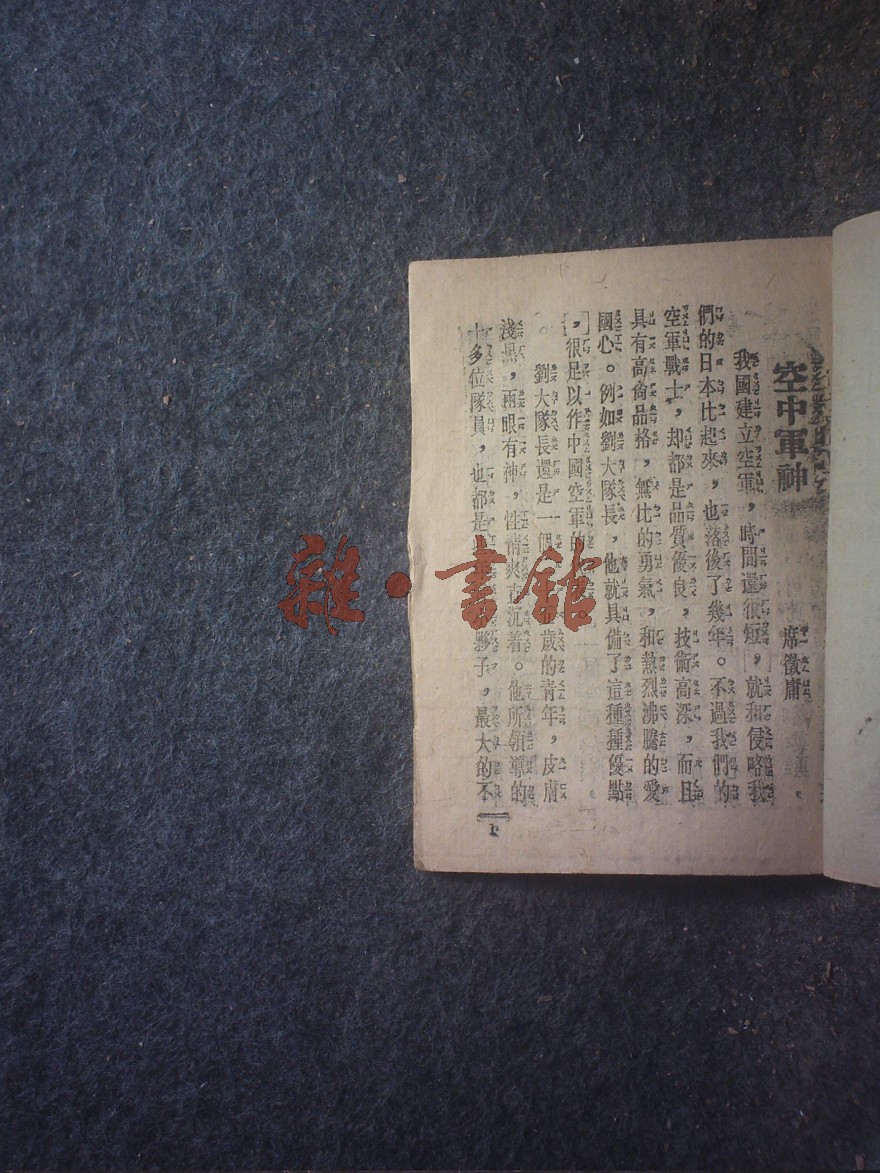 空中軍神
席徵庸
我國建立空軍，時間還很短，就和侵略我
們的日本比起來，也落後了幾年。不過我們的
空軍戰士，却都是品質優良，技術高深，而且
具有高尙品格，無比的勇氣，和熱烈沸騰的愛
國心。例如劉大隊長，他就具備了這種種優點
，很是以作中國空軍的
。
劉大隊長還是一個歲的青年，皮膚
淺黑，兩眼有神，性情爽直沉着。他所領導的
十多位隊員，也都是夥子，最大的不
1
雜·書館